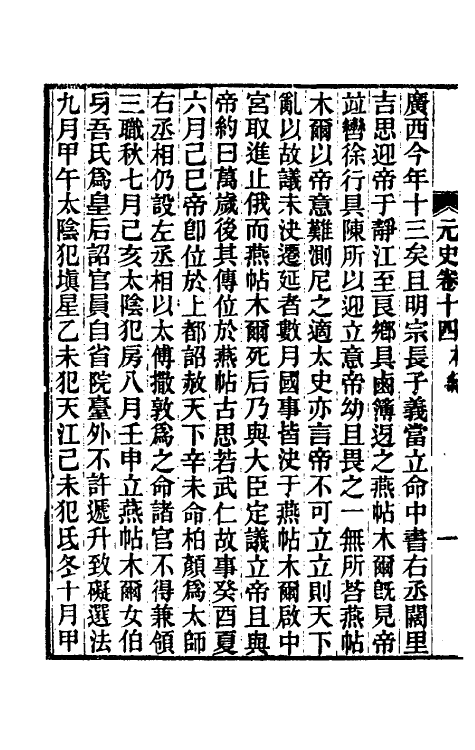 元史卷十四 本紀 一
廣西今年十三矣且明宗長子義當立命中書右丞闊里
吉思迎帝于靜江至良鄉具鹵簿迓之燕帖木爾旣見帝
竝轡徐行具陳所以迎立意帝幼且畏之一無所答燕帖
木爾以帝意難測尼之適太史亦言帝不可立立則天下
亂以故議未決遷延者數月國事皆決于燕帖木爾啟中
宮取進止俄而燕帖木爾死后乃與大臣定議立帝且與
帝約曰萬歲後其傳位於燕帖古思若武仁故事癸酉夏
六月己巳帝卽位於上都詔赦天下辛未命柏顏爲太師
右丞相仍設左丞相以太傅撒敦爲之命諸官不得兼領
三職秋七月己亥太陰犯房八月壬申立燕帖木爾女伯
身吾氏爲皇后詔官員自省院臺外不許遞升致礙選法
九月甲午太陰犯塡星乙未犯天江己未犯氐冬十月甲